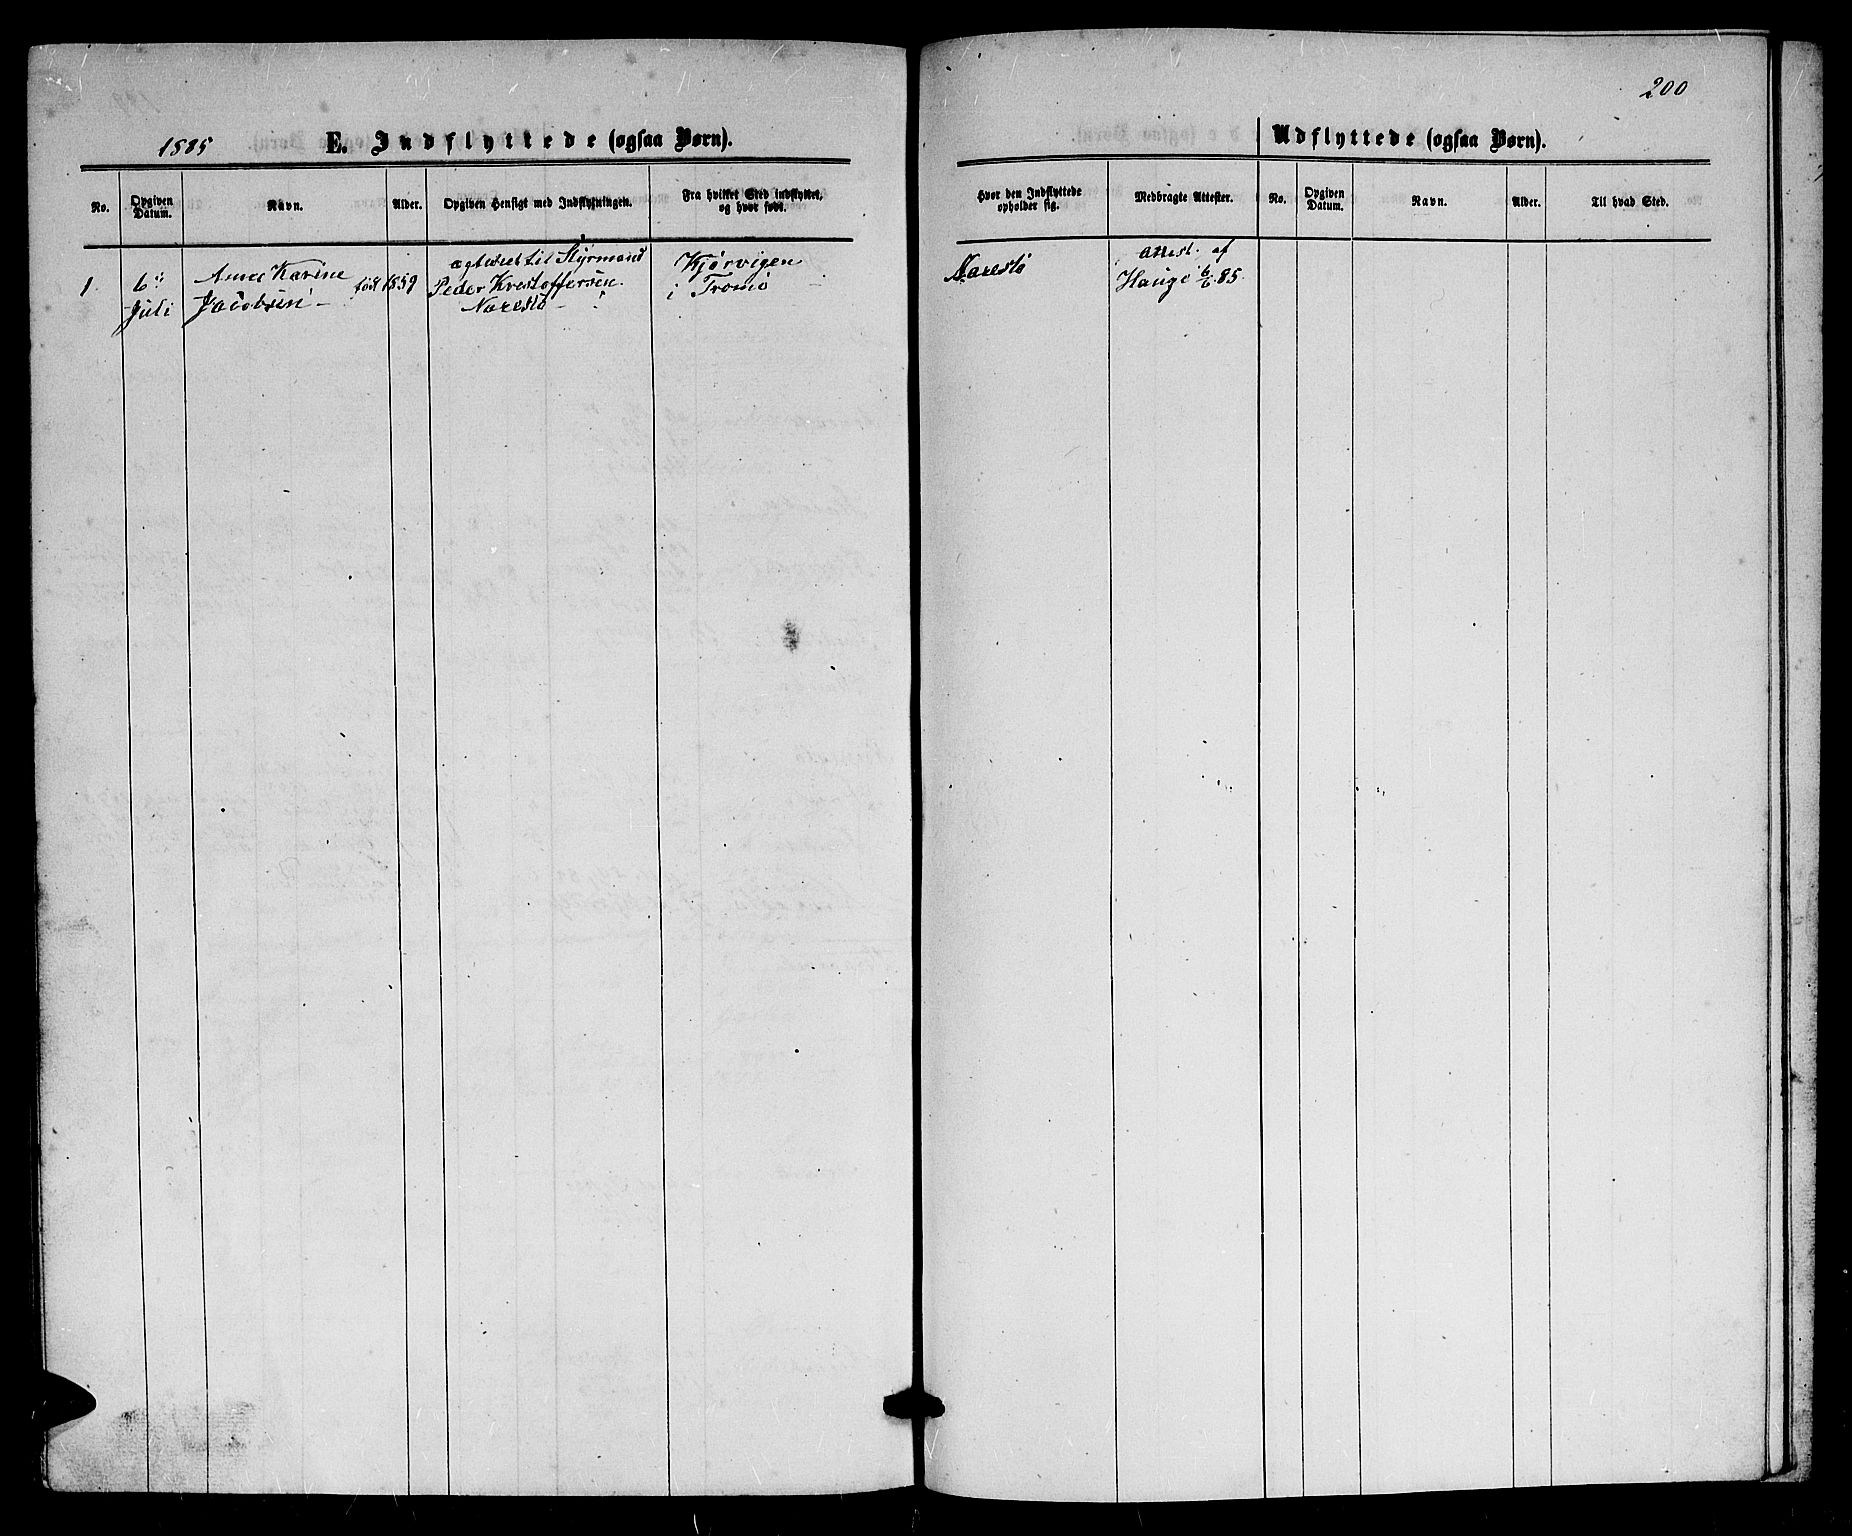 200
1885 E. Indflyttede (ogsaa Børn). Udflyttede (ogsaa Børn).
No. Opgiven Datum. Navn. Alder. Opgiven Hensigt med Indflytningen. Fra hvilket Sted indflyttet, og hvor født. Hvor den Indflyttede opholder sig. Medbragte Attester. No. Opgiven Datum. Navn. Alder. Til hvad Sted.
ægtviet til Styrmand Attest. af
1 6te Anne Karine født 1859 Peder Krestoffersen. Kjørvigen Narestø Hauge 6/6 85.
Juli Jacobsen Narestø i Tromø